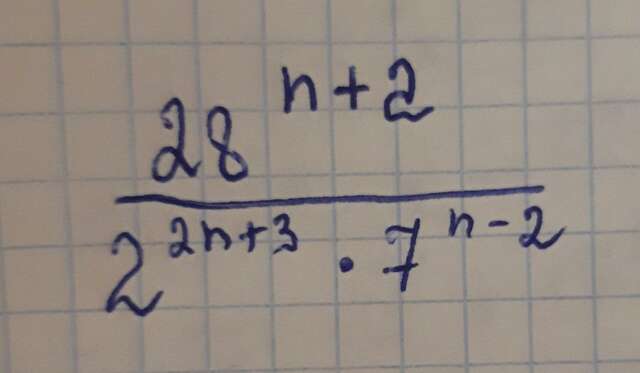 28^{n+2}
2^{2n+3} · 7^{n-2}